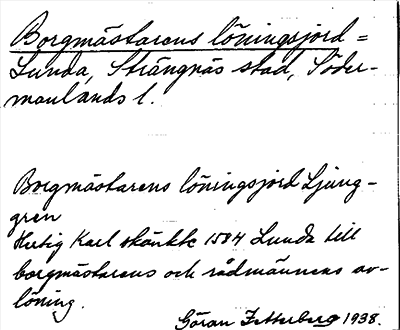 Borgmästarens löningsjord =
Lunda, Strängnäs stad, Söder-
manlands l.
Borgmästarens löningsjord Ljung-
gren
Hertig Karl skänkte 1584 Lunda till
borgmästarens och rådmännens av-
löning.
Göran Zetterberg 1938.